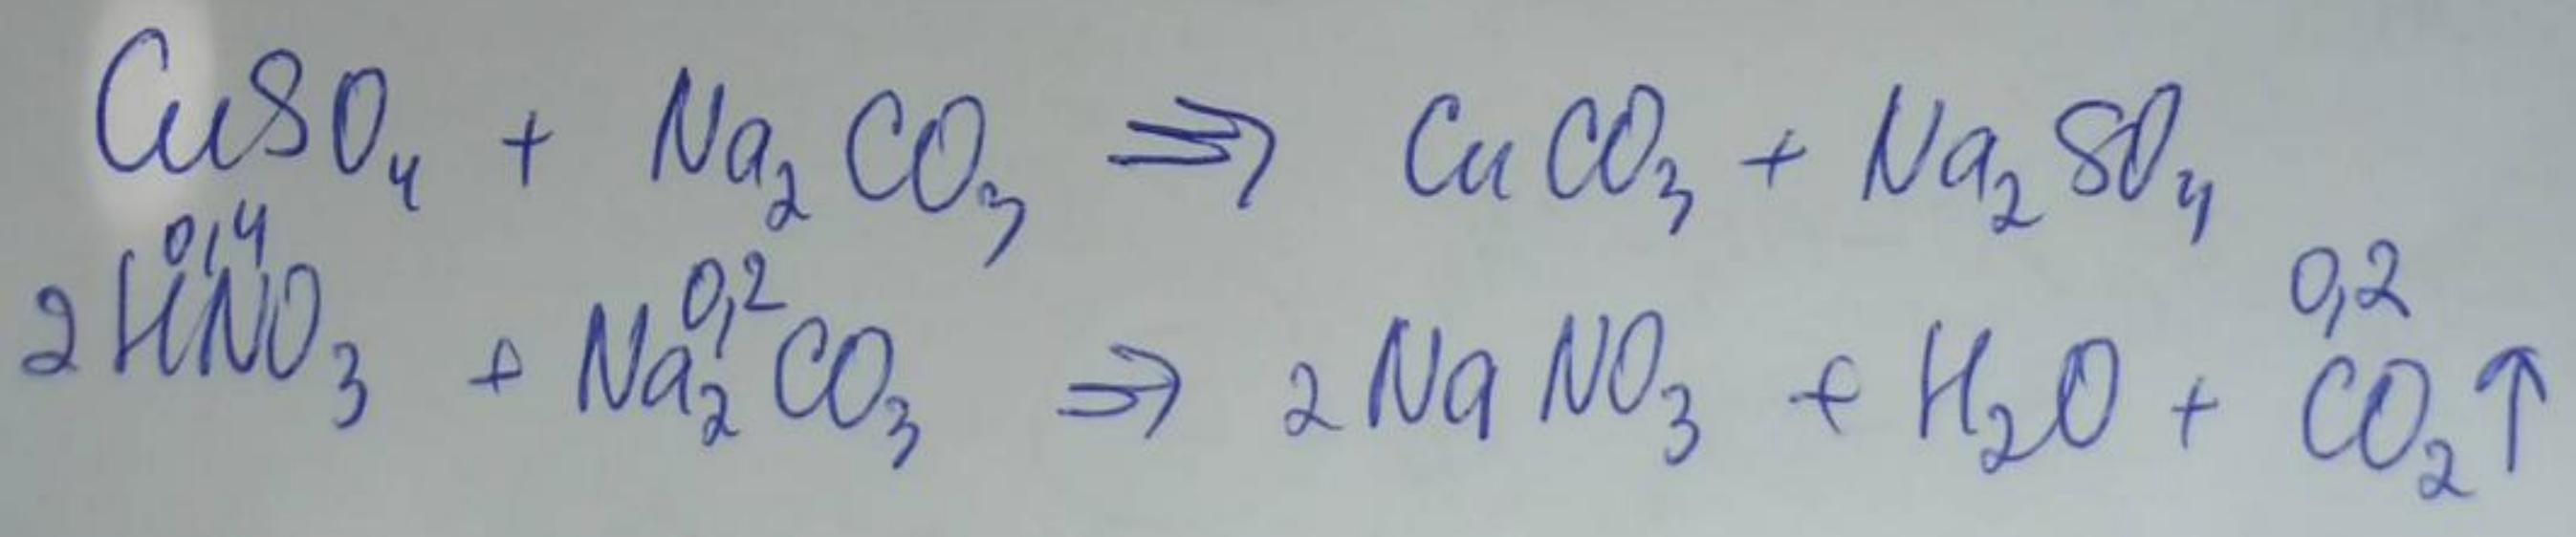 CuSO₄ + Na₂CO₃ ⇒ CuCO₃ + Na₂SO₄
0,4 0,2 0,2
2HNO₃ + Na₂CO₃ ⇒ 2NaNO₃ + H₂O + CO₂↑